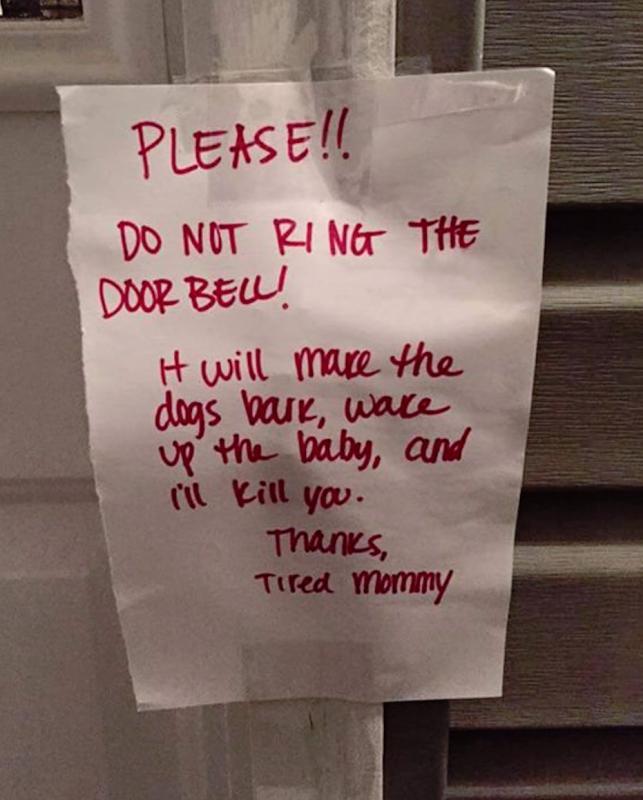 PLEASE!!
DO NOT RING THE
DOOR BELL!
It will make the
dogs bark, wake
up the baby, and
i'll kill you.
Thanks,
Tired mommy